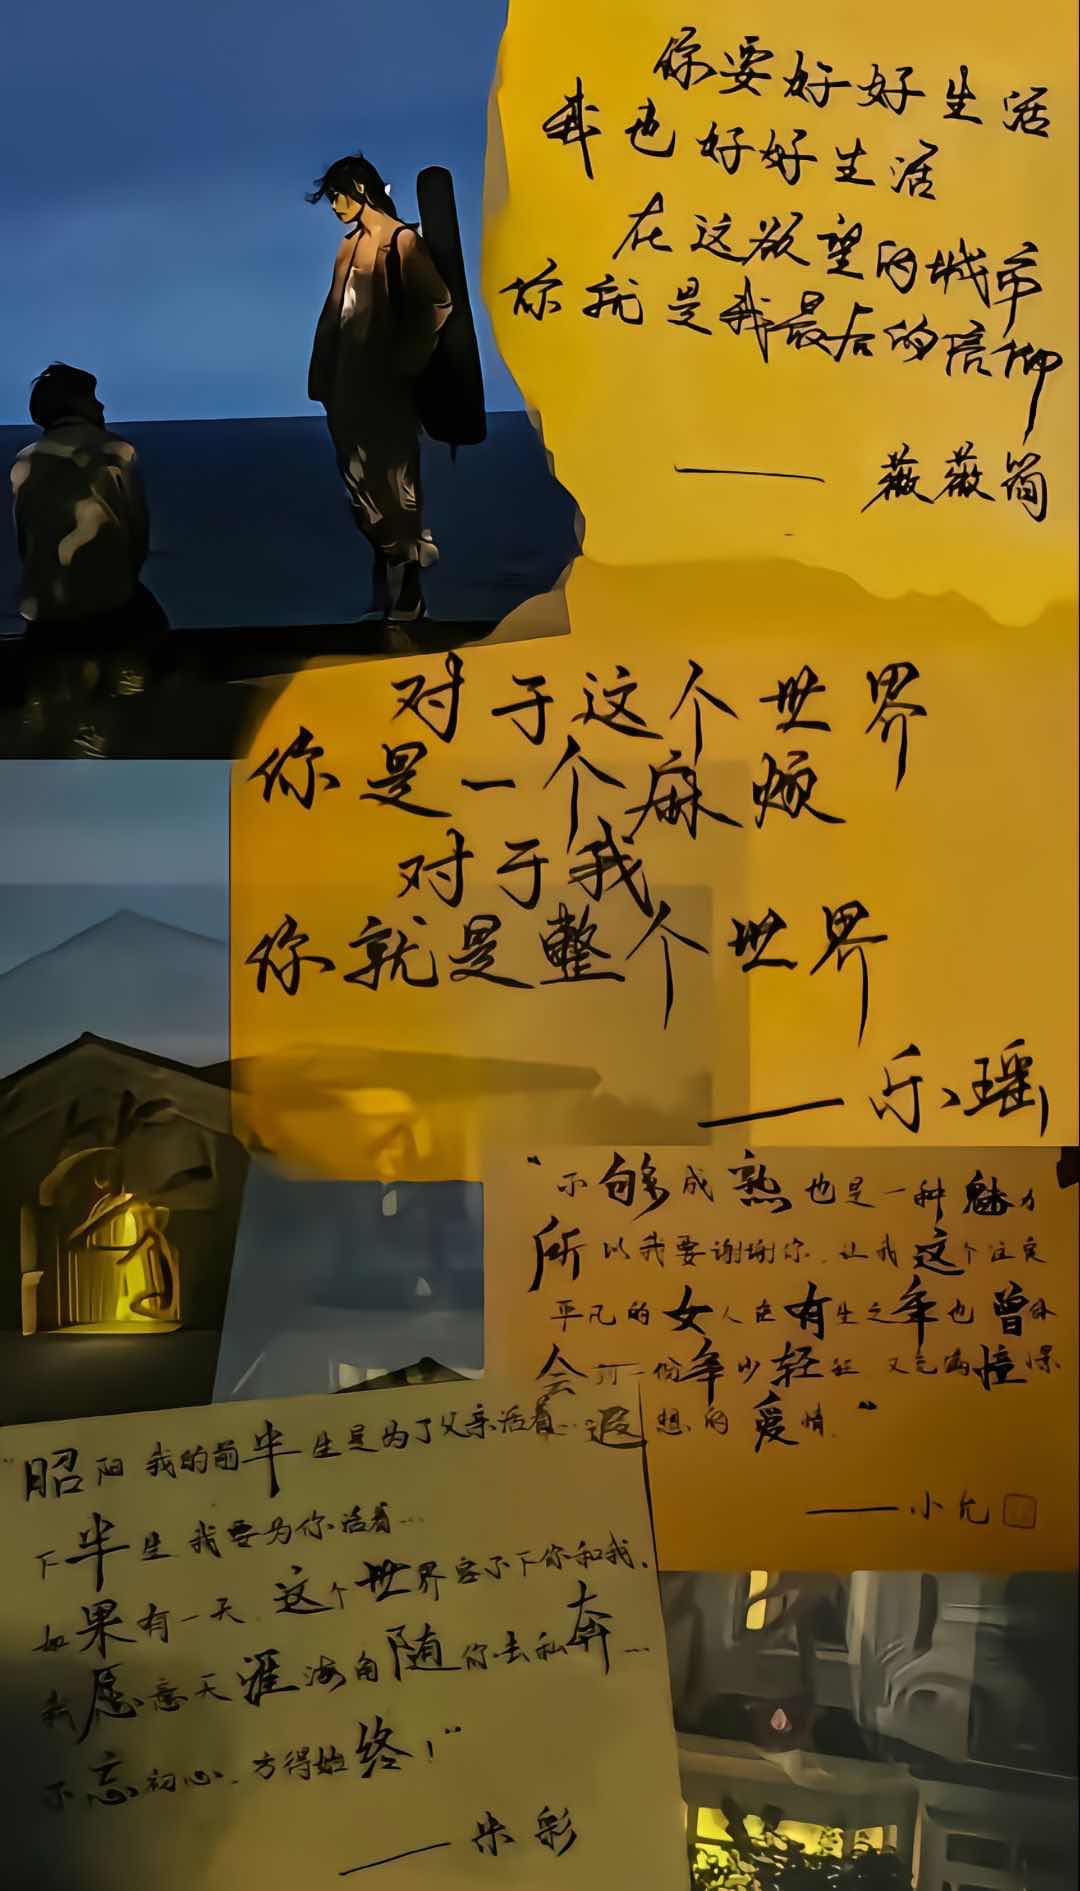 你要好好生活
我也好好生活
在这欲望的城市
你就是我最后的信仰
——薇薇简
对于这个世界
你是一个麻烦
对于我
你就是整个世界
——乐瑶
“不够成熟也是一种魅力
所以我要谢谢你.让我这个注定
平凡的女人在有生之年也曾体
会到一份年少轻狂.又充满憧憬
遐想的爱情.”
——小允
“昭阳 我的前半生是为了父亲活着...
下半生我要为你活着...
如果有一天.这个世界容不下你和我.
我愿意天涯海角随你去私奔...
不忘初心.方得始终!”
——米彩